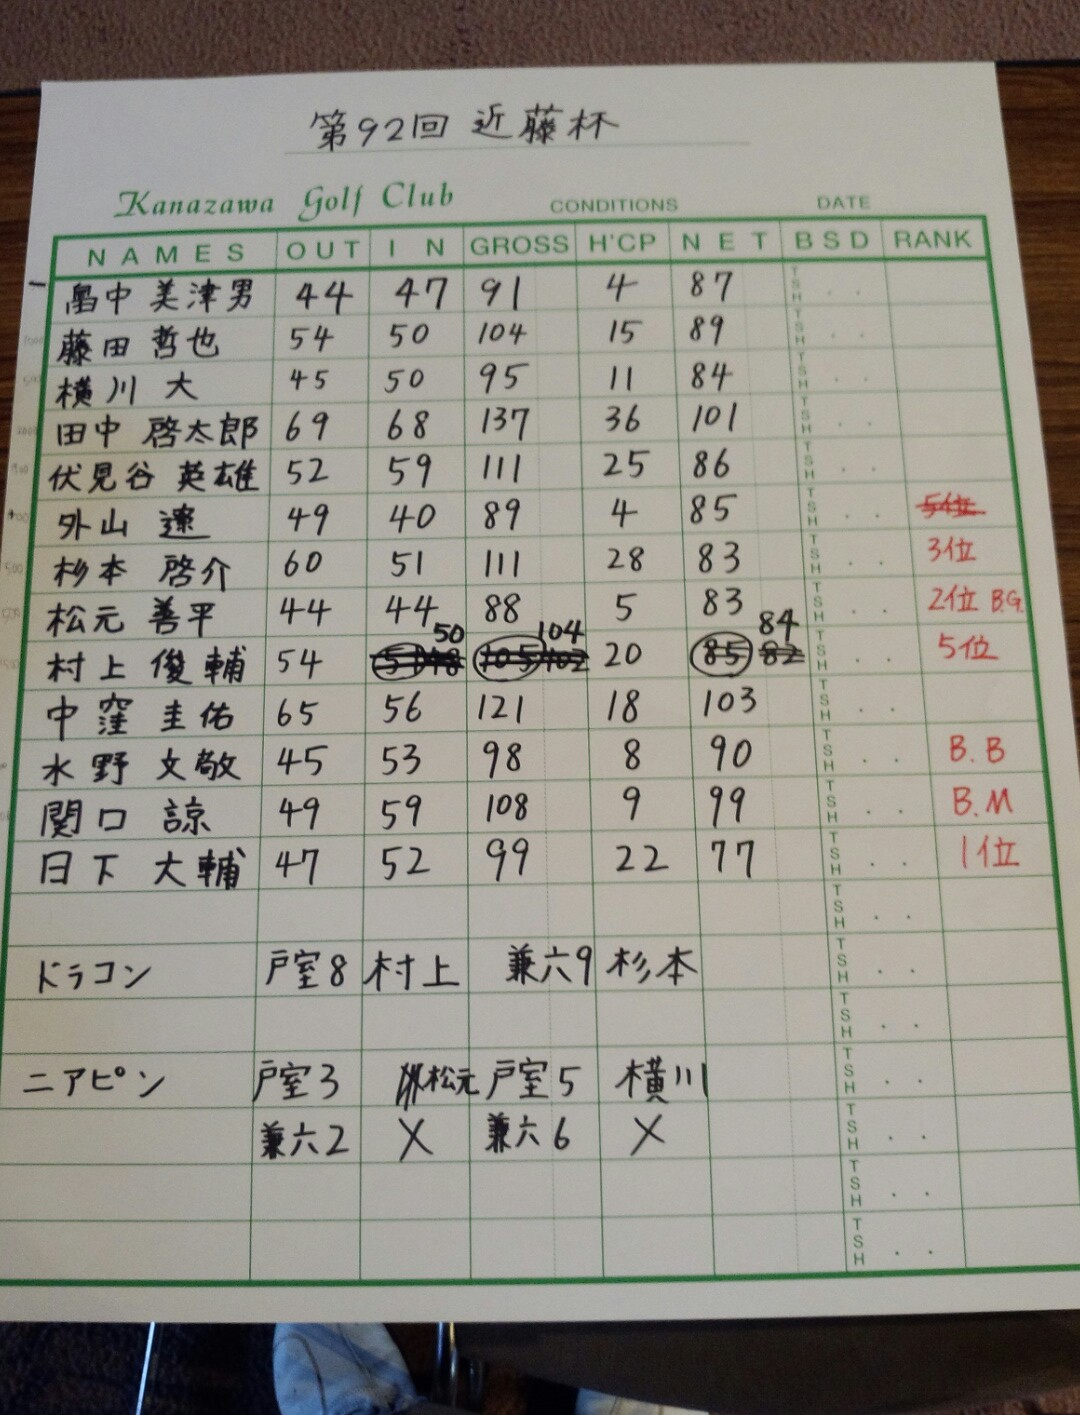 第92回 近藤杯
Kanazawa Golf Club CONDITIONS DATE
NAMES OUT IN GROSS H'CP NET BSD RANK
畠中 美津男 44 47 91 4 87 TSH
藤田 哲也 54 50 104 15 89 TSH
横川 大 45 50 95 11 84 TSH
田中 啓太郎 69 68 137 36 101 TSH
伏見谷 英雄 52 59 111 25 86 TSH
外山 遼 49 40 89 4 85 TSH 5位
杉本 啓介 60 51 111 28 83 TSH 3位
松元 善平 44 44 88 5 83 TSH 2位 B.G.
50 104 84
村上 俊輔 54 51 48 105 102 20 85 82 TSH 5位
中窪 圭佑 65 56 121 18 103 TSH
水野 文敬 45 53 98 8 90 TSH B.B
関口 諒 49 59 108 9 99 TSH B.M
日下 大輔 47 52 99 22 77 TSH 1位
TSH
ドラコン 戸室8 村上 兼六9 杉本 TSH
TSH
ニアピン 戸室3 松元 戸室5 横川 TSH
兼六2 X 兼六6 X TSH
TSH
TSH